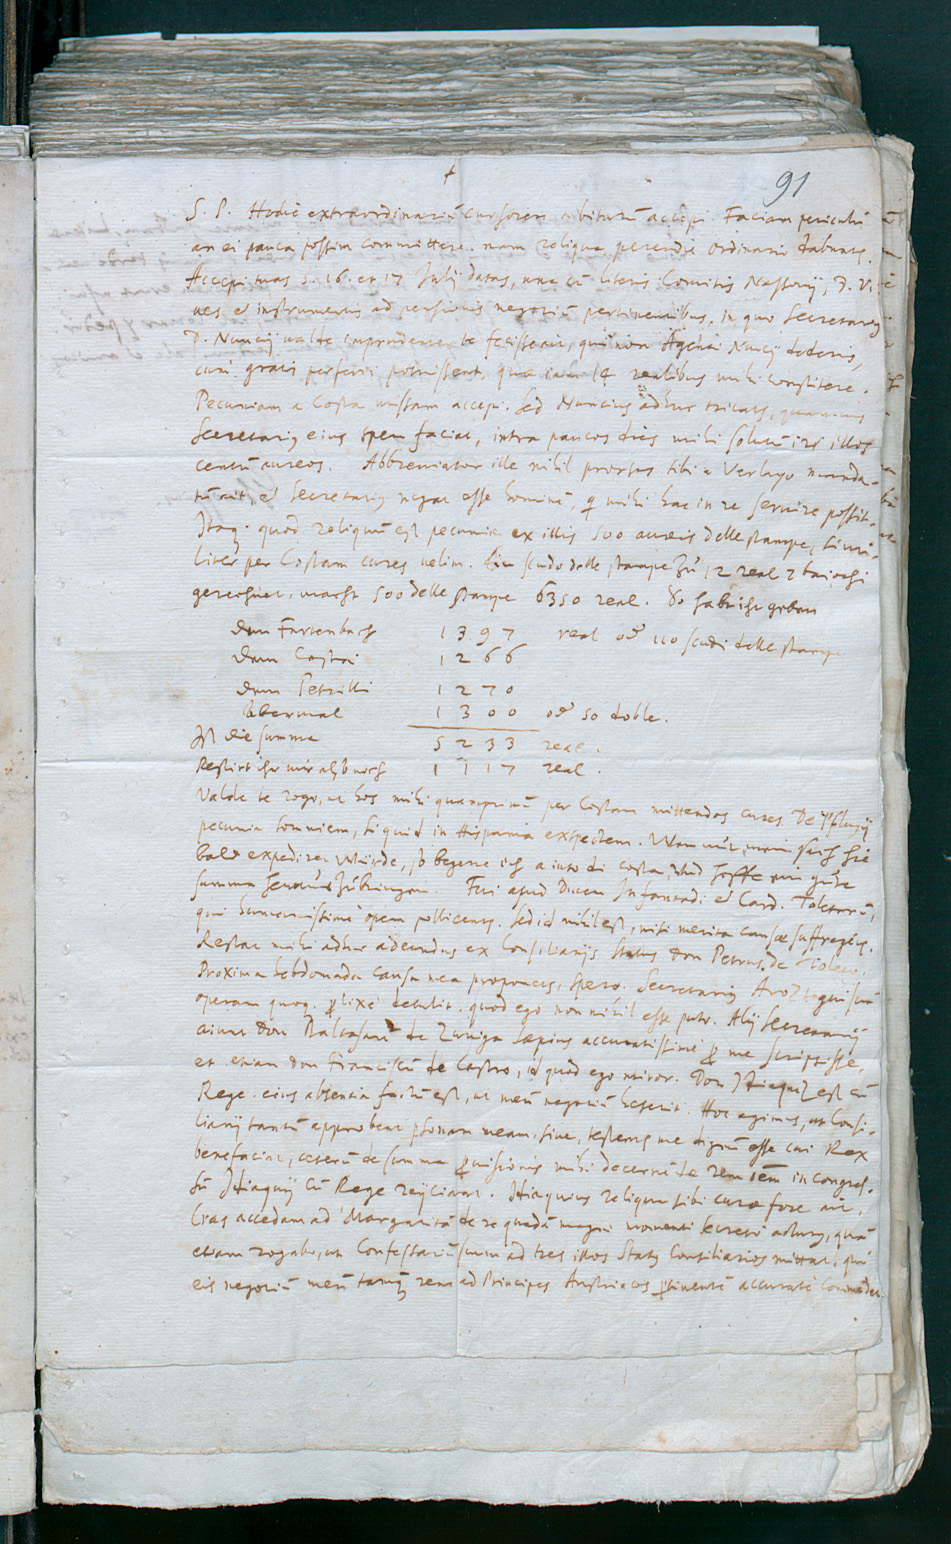 †
91
S. P. Hodie extraordinariũ cursorem abiturũ accepi. Faciam periculũ
an ei pauca possim committere. nam reliqua perendie ordinario dabunt.
Accepi tuas 5. 16. et 17 Julij datas, una cũ literis Comitis Nassovij, D. Vi-
ves, et instrumentis ad pensionis negotiũ pertinentibus, in quo Secretarius
D. Nuncij valde imprudenter te fecisse ait, qui non Agenti Nuncij dederis,
cum gratis perferri potuissent, quae iam 14 realibus mihi constitere.
Pecuniam a Costa missam accepi. Sed Nuncius adhuc tricatur, quamvis
Secretarius eius spem faciat, intra paucos dies mihi solutũ iri illos
centũ aureos. Abbreviator ille nihil prorsus sibi a Verlugo manda-
tũ ait, et Secretarius negat esse hominẽ, q mihi hac in re servire possit.
Itaq. quod reliquũ est pecuniae ex illis 500 aureis delle stampe, simi-
liter per Costam cures velim. Ein scudo delle stampe zu 12 real 7 baiochi
gerechnet, macht 500 delle stampe 6350 real. So habt ihr geben
dem Furtenbach 1397 real od 110 scudi delle stampe
dem Costa 1266
dem Petrilli 1270
abermal 1300 od 50 doble.
Ist die summa 5233 real.
Restirt ihr mir also noch 1117 real.
Valde te rogo, ut hos mihi quamprimũ per Costam mittendos cures. De
pecunia somniem, si quid in Hispania expectem. Wan nur mein sach hie
bald expedirt würde, so begerte ich aiuto di costa, und hoffe ein gute
summa hinaus zu bringen. Fui apud Ducem Infantadi et Card. Toletanũ,
qui humanissime opem pollicentur. sed id nihil est, nisi merita causae suffragentur.
Restat mihi adhuc adeundus ex Consiliarijs Status Don Petrus de Toledo.
Proxima hebdomada causa mea proponetur, spero. Secretarius Aroztegui suã
operam quoq. prolixe detulit. quod ego nonnihil esse puto. Alij Secretarij
aiunt Don Baltasarũ de Zuniga saepius accuratissime pro me scripsisse,
et etiam don Franciscũ de Castro, id quod ego miror. Don Idiaquez est cũ
Rege. eius absentia factũ est, ut meũ negotiũ heserit. Hoc agimus, ut Consi-
liarij tantũ approbent psonam meam, sive, testentur me dignũ esse cui Rex
benefaciat, ceterũ de summa provisionis mihi decernẽdae rem oẽm in congres-
sũ Idiaquij cũ Rege reijciant. Idiaquius reliqua sibi curae fore ait.
Cras accedam ad Margaritã de re quadã magni momenti secreto adhuc, quã
etiam rogabo, ut Confessariũ suum ad tres illos Status Consiliarios mittat, qui
eis negotiũ meũ tamq. rem ad Principes Austriacos ptinentẽ accurate commẽdet